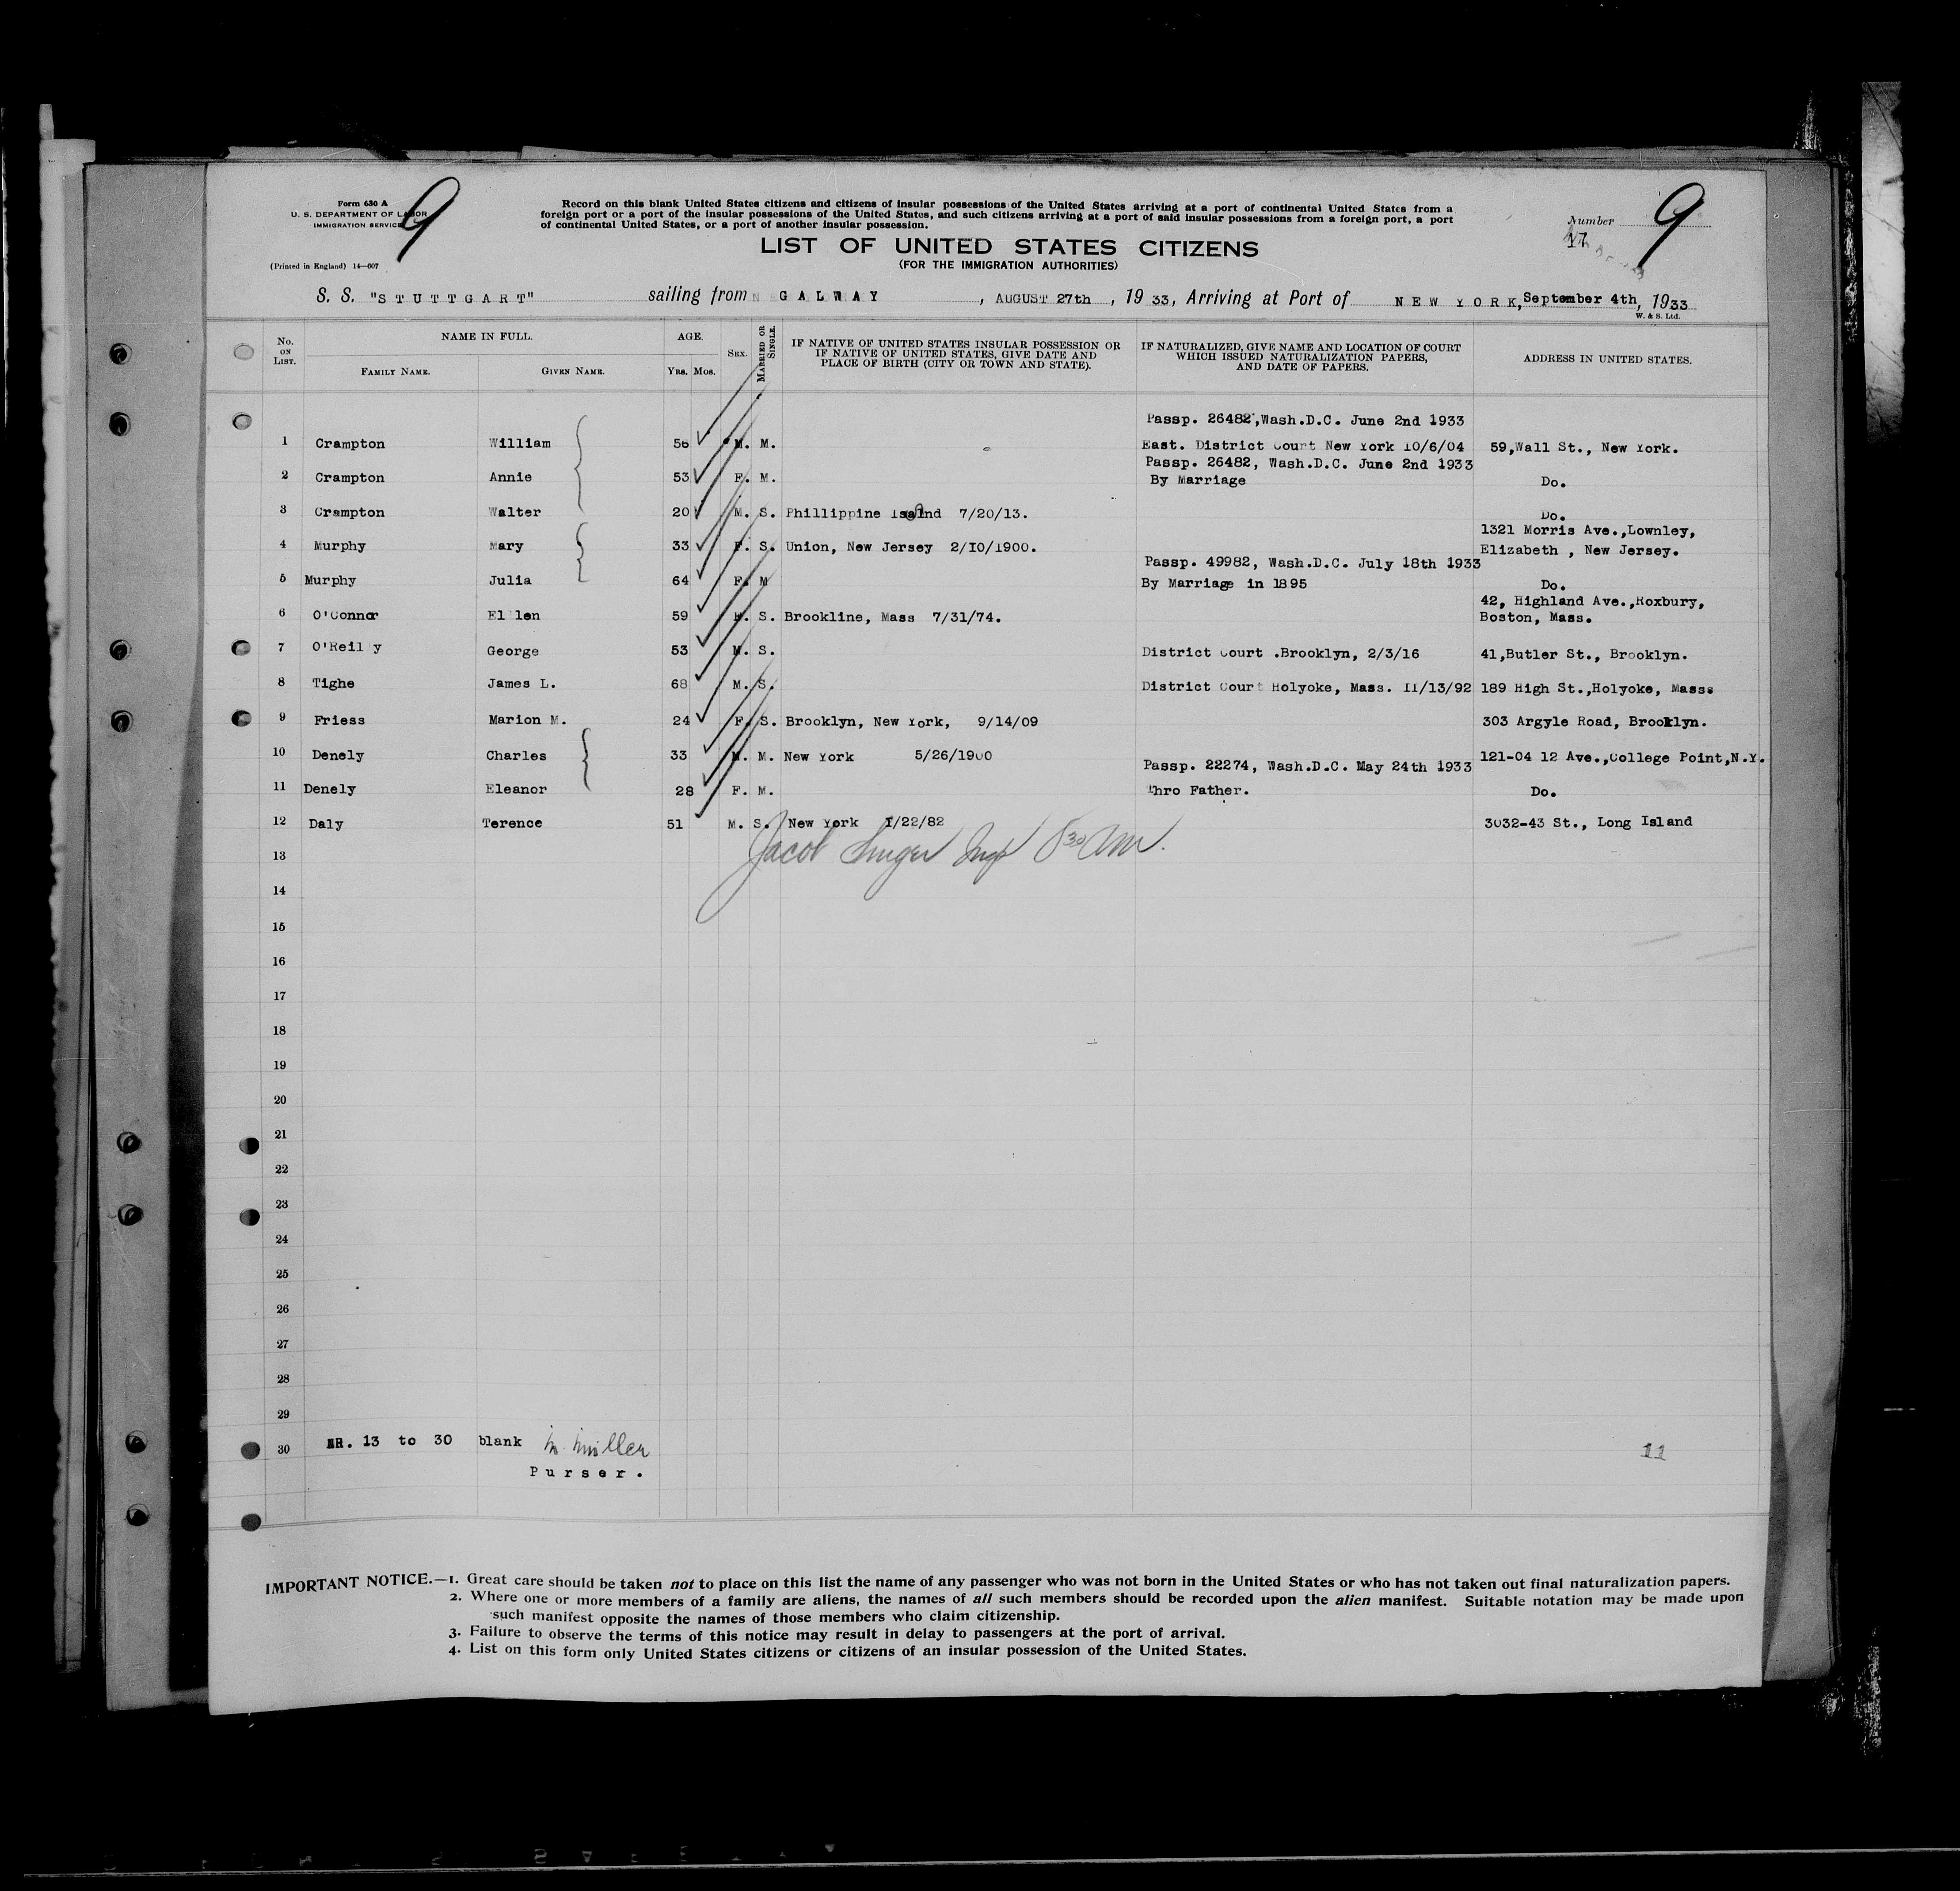 Form 630 A
U. S. DEPARTMENT OF LABOR
IMMIGRATION SERVICE
9
(Printed in England) 14—607
Record on this blank United States citizens and citizens of insular possessions of the United States arriving at a port of continental United States from a
foreign port or a port of the insular possessions of the United States, and such citizens arriving at a port of said insular possessions from a foreign port, a port
of continental United States, or a port of another insular possession.
LIST OF UNITED STATES CITIZENS
(FOR THE IMMIGRATION AUTHORITIES)
Number 9
17
S. S. "STUTTGART" sailing from GALWAY, AUGUST 27th, 1933, Arriving at Port of NEW YORK, September 4th, 1933
W. & S. Ltd.
No. ON LIST. NAME IN FULL. FAMILY NAME. GIVEN NAME. AGE. Yrs. Mos. SEX. MARRIED OR SINGLE. IF NATIVE OF UNITED STATES INSULAR POSSESSION OR IF NATIVE OF UNITED STATES, GIVE DATE AND PLACE OF BIRTH (CITY OR TOWN AND STATE). IF NATURALIZED, GIVE NAME AND LOCATION OF COURT WHICH ISSUED NATURALIZATION PAPERS, AND DATE OF PAPERS. ADDRESS IN UNITED STATES.
Passp. 26482, Wash.D.C. June 2nd 1933
1 Crampton William 56 M. M. East. District Court New York 10/6/04 59,Wall St., New York.
Passp. 26482, Wash.D.C. June 2nd 1933
2 Crampton Annie 53 F. M. By Marriage Do.
3 Crampton Walter 20 M. S. Phillippine Island 7/20/13. Do.
1321 Morris Ave.,Lownley,
4 Murphy Mary 33 F. S. Union, New Jersey 2/10/1900. Elizabeth , New Jersey.
Passp. 49982, Wash.D.C. July 18th 1933
5 Murphy Julia 64 F. M By Marriage in 1895 Do.
42, Highland Ave.,Roxbury,
6 O'Connor Ellen 59 F. S. Brookline, Mass 7/31/74. Boston, Mass.
7 O'Reilly George 53 M. S. District Court .Brooklyn, 2/3/16 41,Butler St., Brooklyn.
8 Tighe James L. 68 M. S. District Court Holyoke, Mass. 11/13/92 189 High St.,Holyoke, Masss
9 Friess Marion M. 24 F. S. Brooklyn, New York, 9/14/09 303 Argyle Road, Brooklyn.
10 Denely Charles 33 M. M. New York 5/26/1900 121-04 12 Ave.,College Point,N.Y.
Passp. 22274, Wash.D.C. May 24th 1933
11 Denely Eleanor 28 F. M. Thro Father. Do.
12 Daly Terence 51 M. S. New York 1/22/82 3032-43 St., Long Island
13 Jacob Singer Insp 8 30 AM.
14
15
16
17
18
19
20
21
22
23
24
25
26
27
28
29
30 NR. 13 to 30 blank M. Miller 11
Purser.
IMPORTANT NOTICE.—1. Great care should be taken not to place on this list the name of any passenger who was not born in the United States or who has not taken out final naturalization papers.
2. Where one or more members of a family are aliens, the names of all such members should be recorded upon the alien manifest. Suitable notation may be made upon
such manifest opposite the names of those members who claim citizenship.
3. Failure to observe the terms of this notice may result in delay to passengers at the port of arrival.
4. List on this form only United States citizens or citizens of an insular possession of the United States.